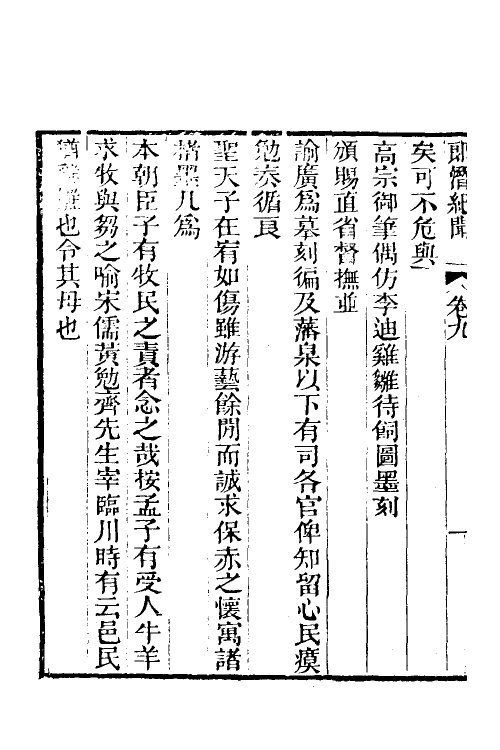 郎潛紀聞 卷九 一
矣可不危與
高宗御筆偶仿李迪雞雛待飼圖墨刻
頒賜直省督撫並
諭廣爲摹刻徧及藩臬以下有司各官俾知留心民瘼
勉奏循良
聖天子在宥如傷雖游藝餘閒而誠求保赤之懷寓諸
楮墨凡爲
本朝臣子有牧民之責者念之哉按孟子有受人牛羊
求牧與芻之喻宋儒黃勉齊先生宰臨川時有云邑民
猶雞雛也令其母也